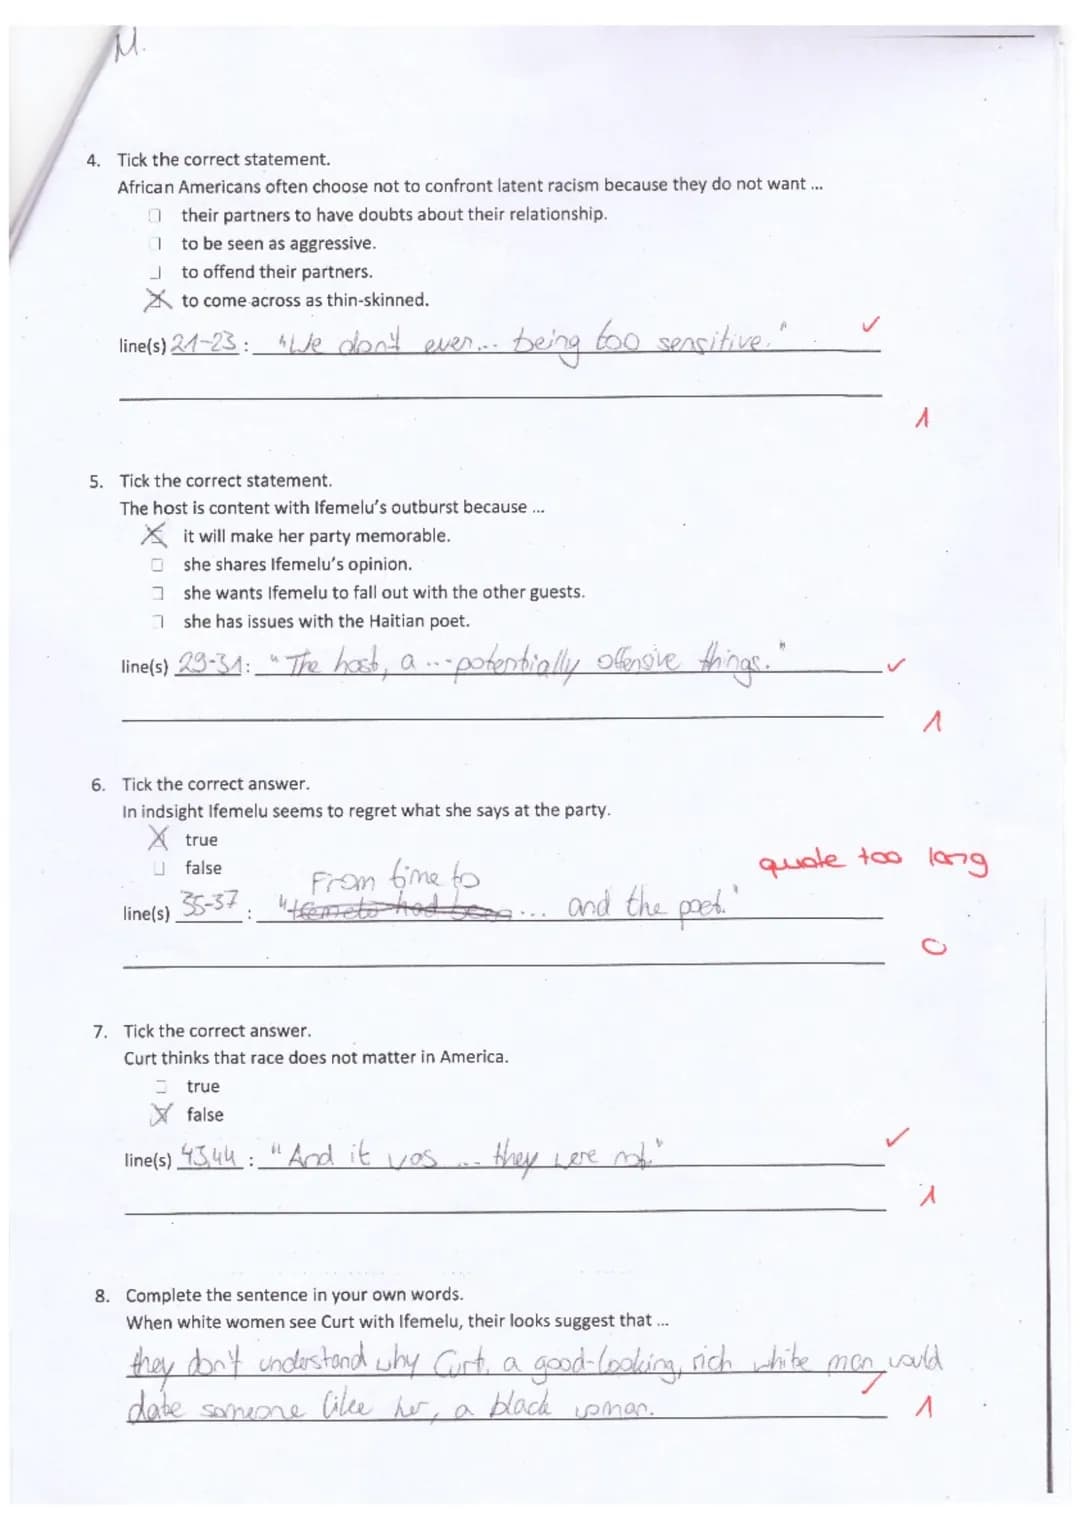 M.
4. Tick the correct statement.
African Americans often choose not to confront latent racism because they do not want ...
their partners to have doubts about their relationship.
to be seen as aggressive.
to offend their partners.
to come across as thin-skinned.
line(s) 21-23: "We don't ever... being too sensitive."
1
5. Tick the correct statement.
The host is content with Ifemelu's outburst because ...
it will make her party memorable.
she shares Ifemelu's opinion.
she wants Ifemelu to fall out with the other guests.
she has issues with the Haitian poet.
line(s) 29-31: "The host, a ... potentially offensive things."
1
6. Tick the correct answer.
In indsight Ifemelu seems to regret what she says at the party.
true
false
quote too long
From time to
line(s) 35-37: "Ifemelu had been ... and the poet."
0
7. Tick the correct answer.
Curt thinks that race does not matter in America.
true
false
line(s) 43,44: "And it was ... they were not."
1
8. Complete the sentence in your own words.
When white women see Curt with Ifemelu, their looks suggest that ...
they don't understand why Curt, a good-looking, rich white man would
date someone like her, a black woman.
1